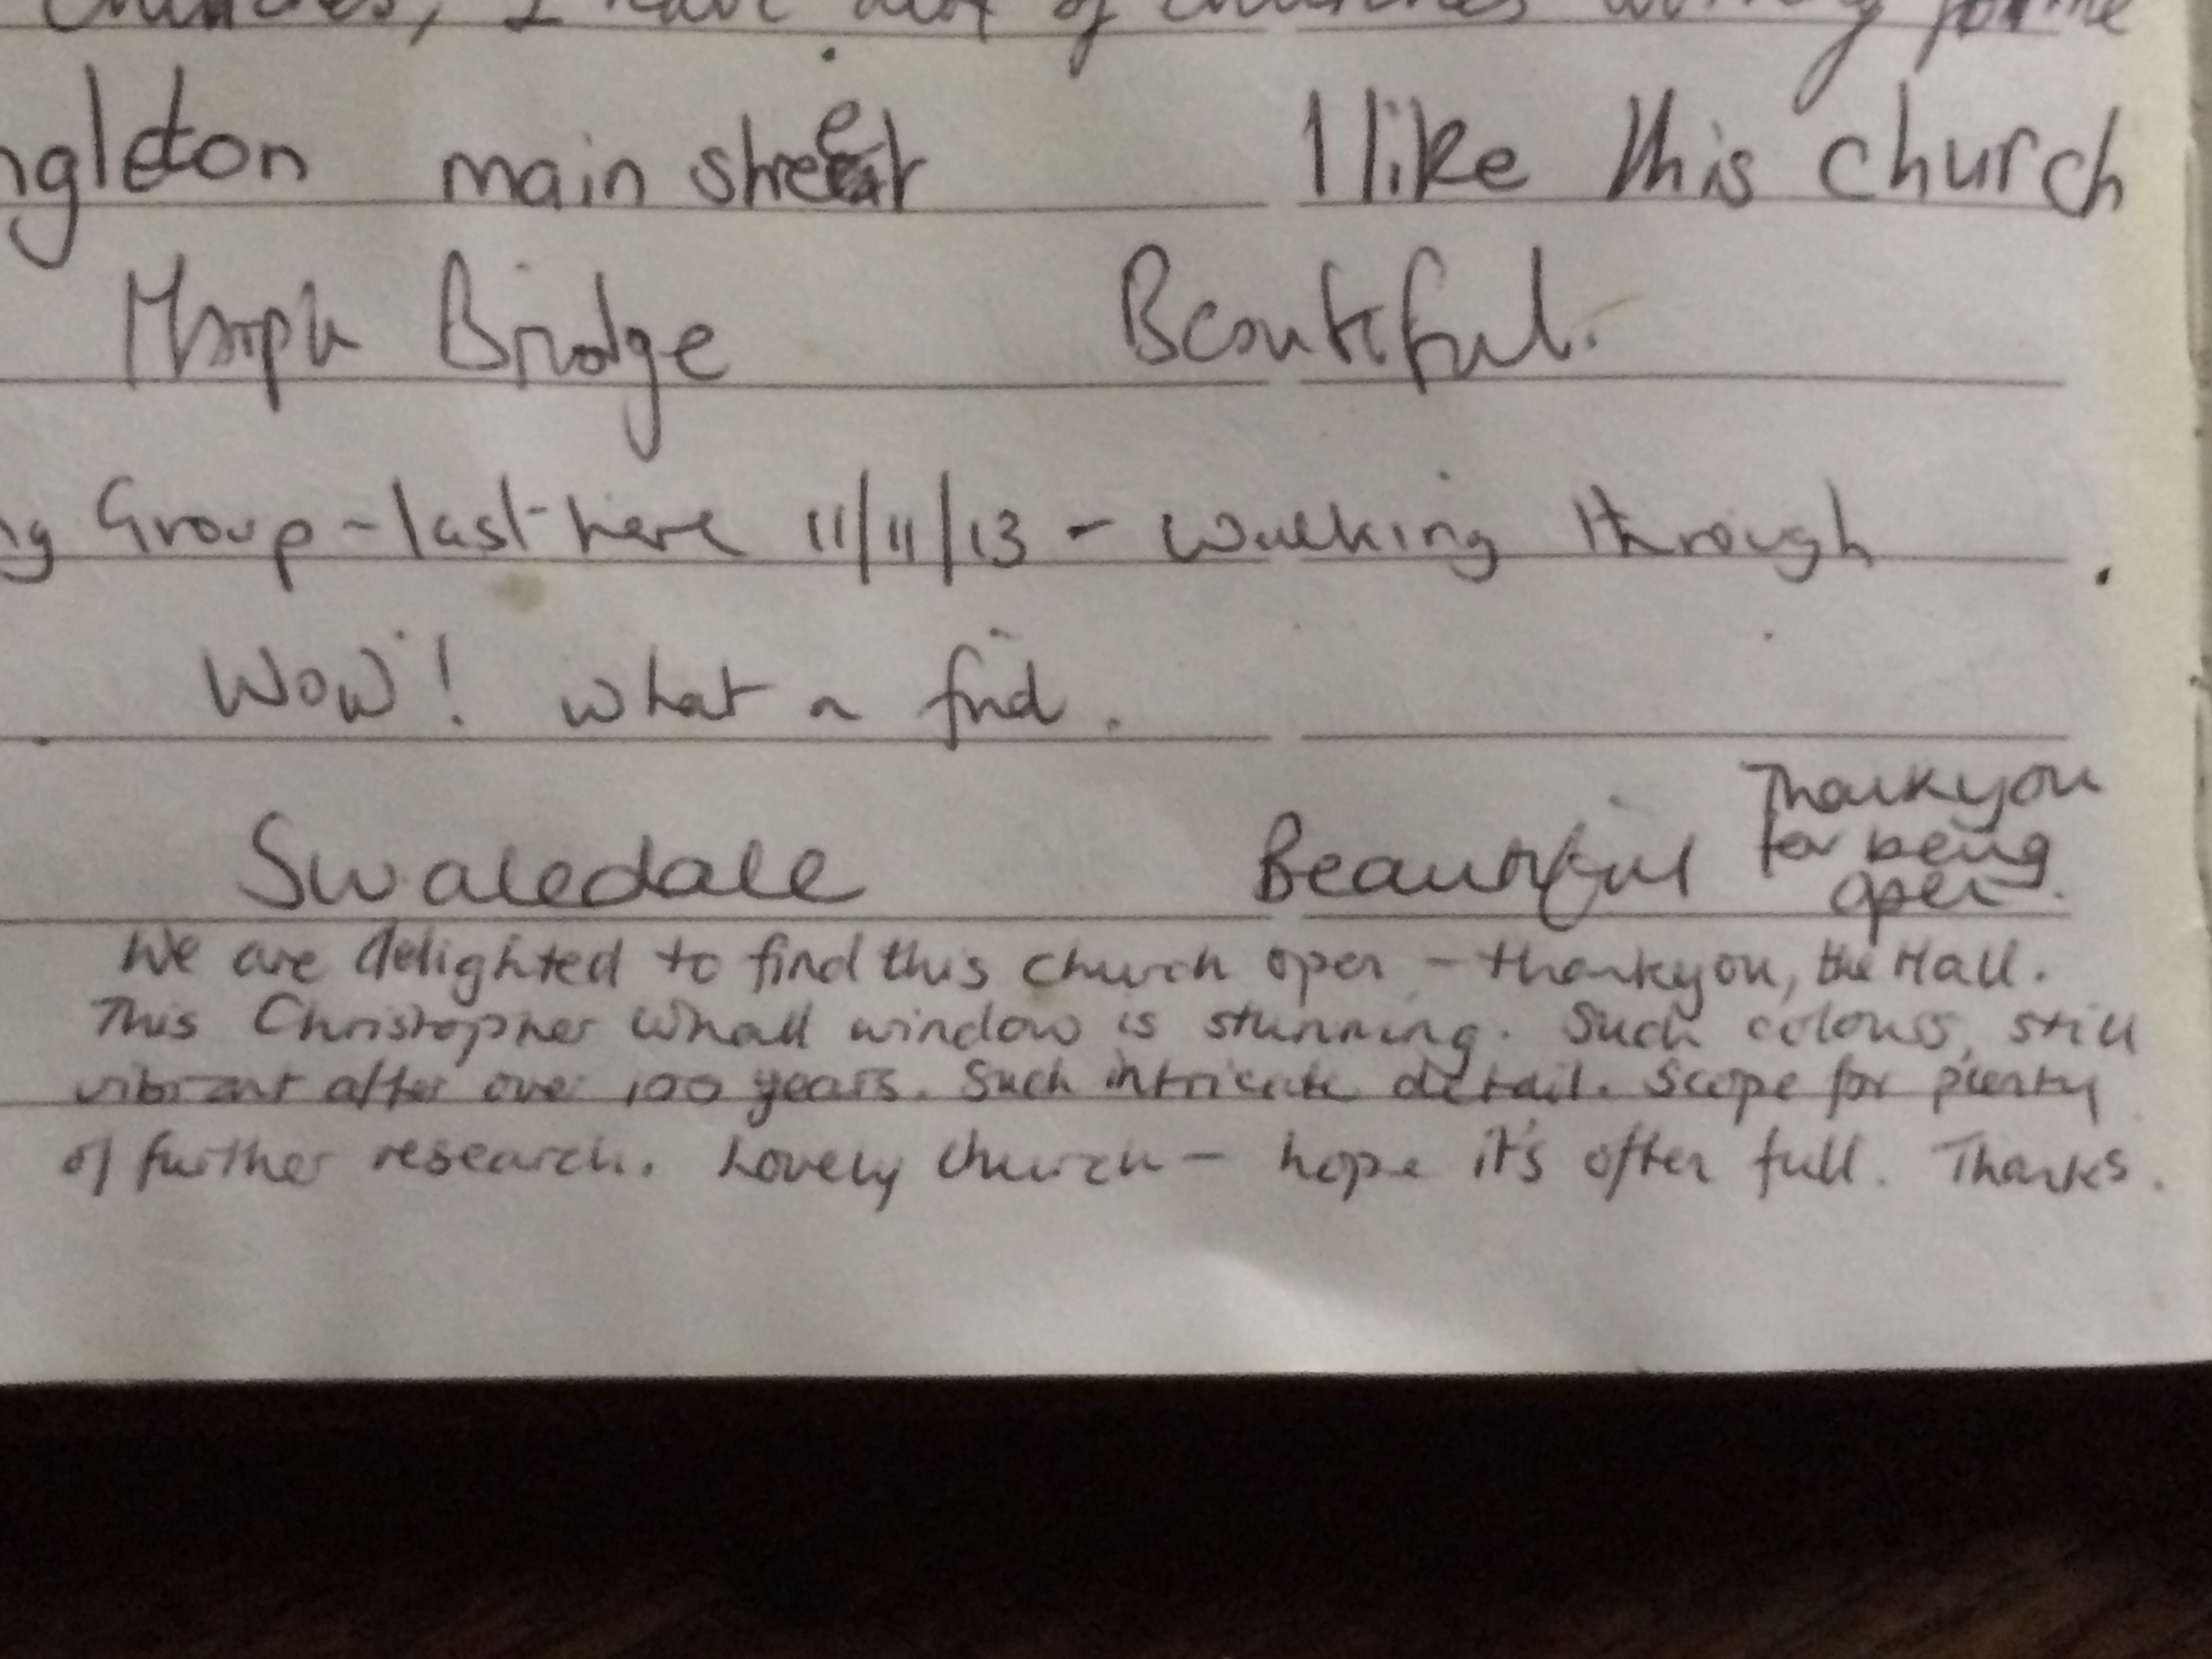 I have of churches
ngleton main street I like this church
Bridge Beautiful.
Group - last here 11/11/13 - walking through
Wow! what a find.
Swaledale Beautiful Thankyou
for being
open.
We are delighted to find this church open - thankyou, the Hall.
This Christopher Whall window is stunning. Such colours, still
vibrant after over 100 years. Such intricate detail. Scope for plenty
of further research. Lovely church - hope it's often full. Thanks.